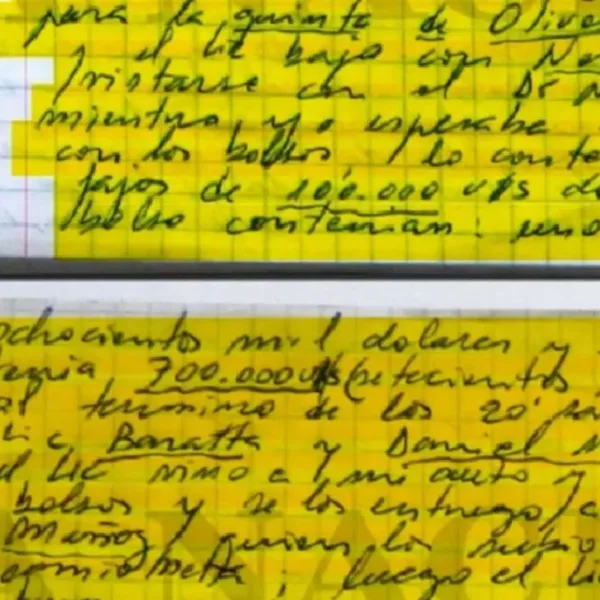 para la quinta de Olivo
y el Lic bajo con Ne
/ristarse con el Dr N
mientras yo esperaba
con los bolsos / lo conta
fajos de 100.000 U$S do
/bolso contenian: uno
ochocientos mil dolares y
tenia 700.000 U$S (setecientos
al termino de los 20' sa
Lic Baratta y Daniel M
el LIC vino a / mi auto y
bolsos y se los entrego / a
Muñoz / quien los subio
camioneta; luego el Li